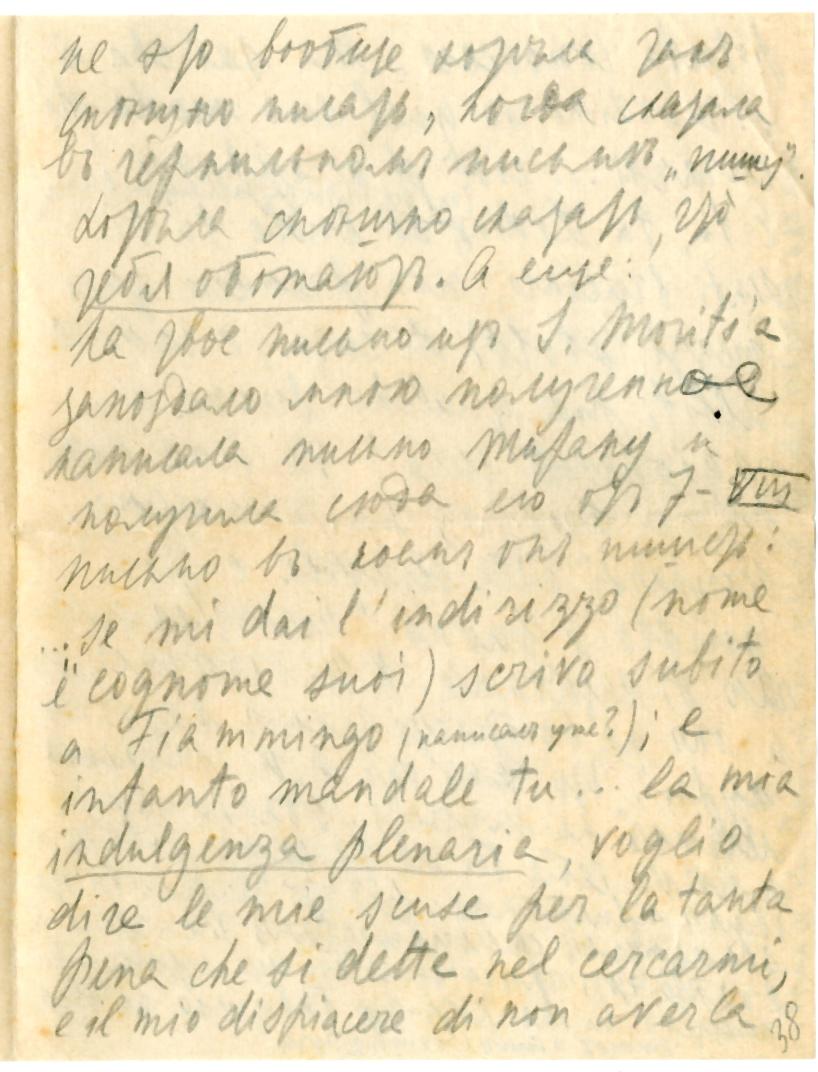 не это вообще хотѣла такъ
спѣшно писать, когда сказала
въ чернильномъ письмѣ „пишу".
Хотѣла спѣшно сказать, что
тебя обожаютъ. А еще:
на твое письмо изъ S. Morits'a
запоздало мною полученное,
написала письмо Мифану и
получила сюда его отъ 7-VIII
письмо въ коемъ онъ пишетъ:
...se mi dai l'indirizzo (nome
e cognome suoi) scrivo subito
a Fiammingo (написалъ уже?); e
intanto mandale tu... la mia
indulgenza plenaria, voglio
dire le mie scuse per la tanta
pena che si dette nel cercarmi,
e il mio dispiacere di non averla
38